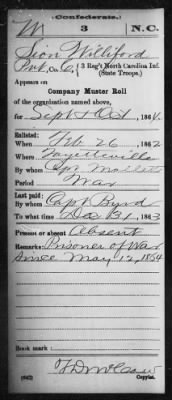 (Confederate.)
W 3 N.C.
Sion Williford
Pvt, Co. C, 3 Reg't North Carolina Inf.
(State Troops.)
Appears on
Company Muster Roll
of the organization named above,
for Sept & Oct, 1864.
Enlisted:
When Feb 26, 1862
Where Fayetteville
By whom Capt
Period War
Last paid:
By whom Capt Byrd
To what time Dec 31, 1863
Present or absent Absent
Remarks: Prisoner of War
since May 12, 1864
(642) Copyist.